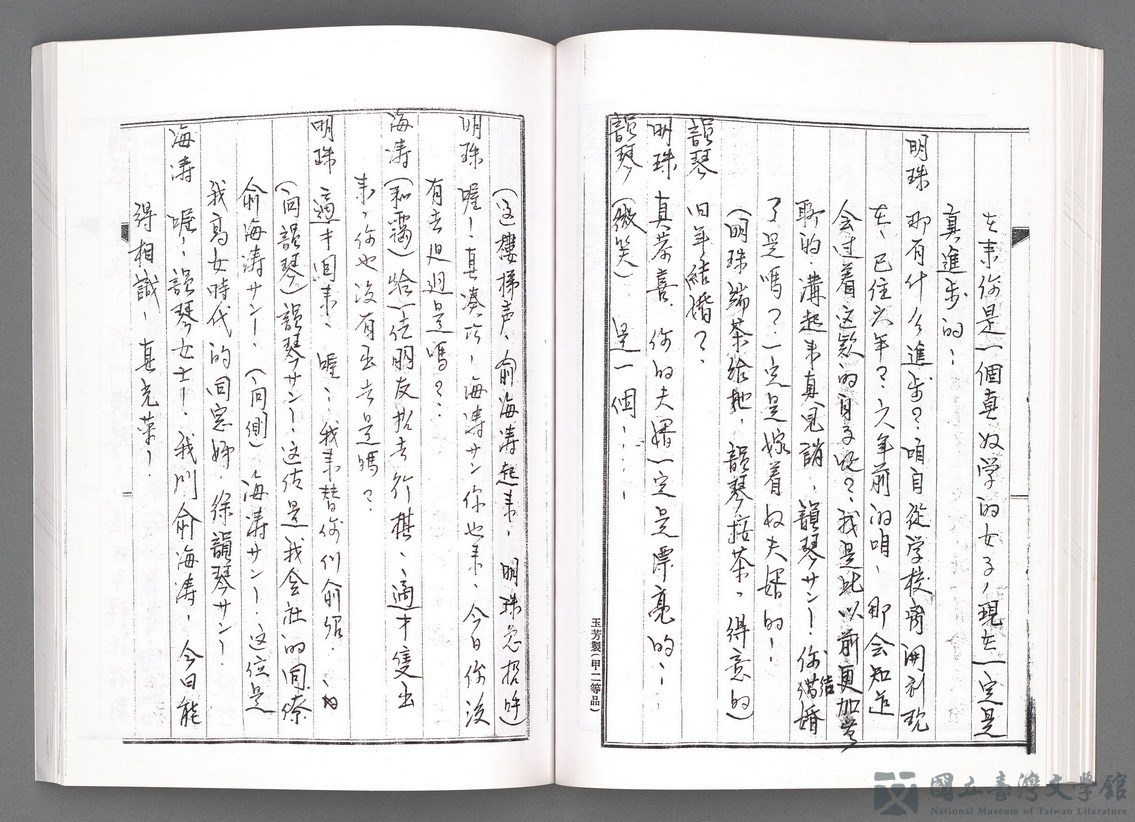 在來你是一個真好学的女子，現在一定是
真進步的！
明珠 那有什么進步？咱自從学校离開到現
在、已住六年？六年前的咱、那会知造
会过着这款的日子呢？我是比以前更加
聊的、溝起来真見誚，韻琴サン！你結婚
了是嗎？一定是嫁着好夫婿的！
韻琴 旧年結婚？
明珠 真恭喜、你的夫婿一定是漂亮的！
(明珠端茶給她，韻琴接茶，得意的)
韻琴 (微笑) 是一個、、、、
玉芳製(甲二等品)
(這樓梯声、俞海涛起来，明珠急招呼)
明珠 喔！真凑巧，海涛サン你也来、今日你没
有去 是嗎？
海涛 (和靄) 給一位朋友招去行棋、適才隻出
来，你也没有出去是嗎？
明珠 適才回来、喔、我来替你们俞紹、
(向韻琴) 韻琴サン！这位是我会社的同僚
俞海涛サン！(向側) 海涛サン！这位是
我高女時代的同窓姉、徐韻琴サン！
海涛 喔！韻琴女士！我叫俞海涛，今日能
得相識！真光荣！
國立臺灣文學館
National Museum of Taiwan Literature